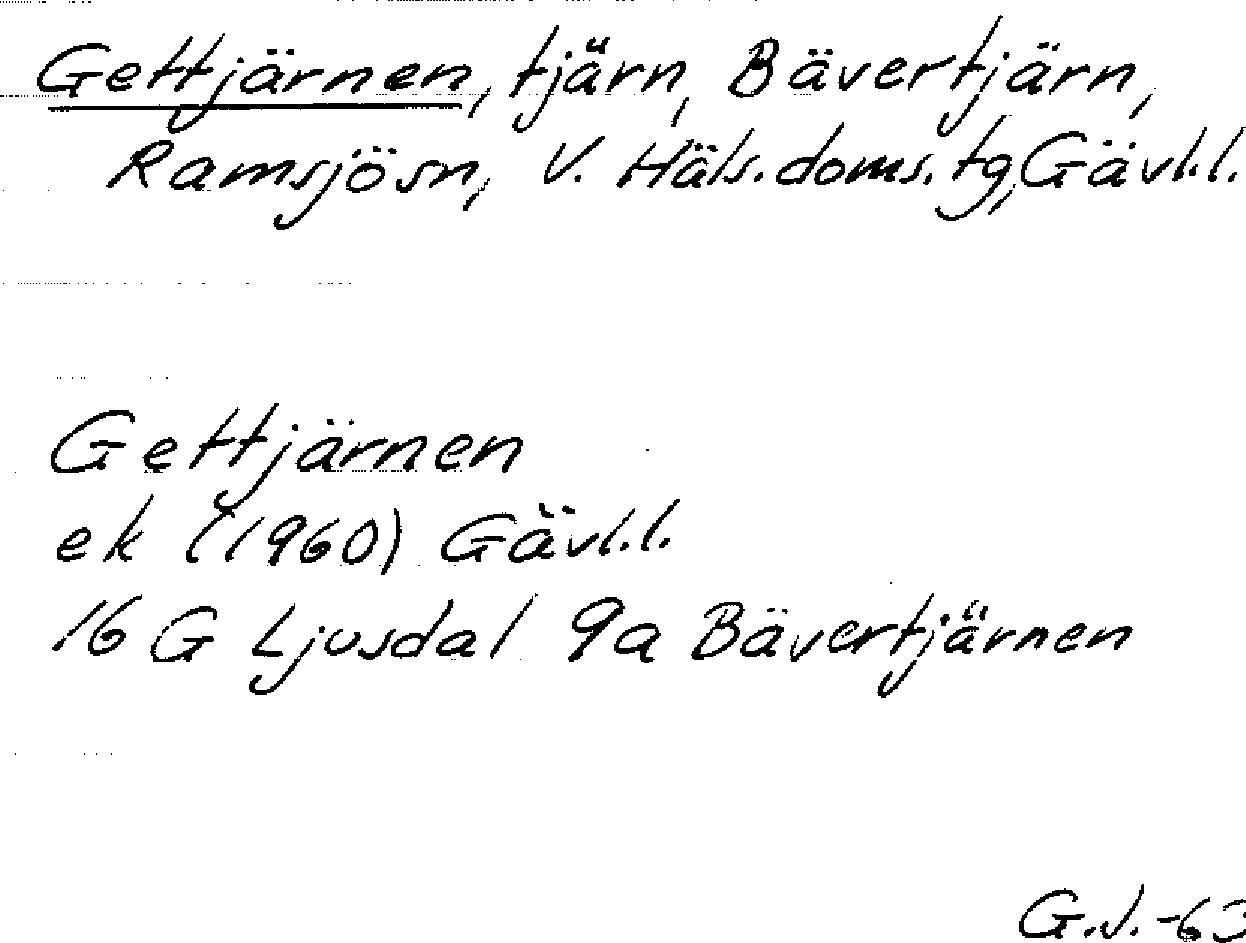 Gettjärnen, tjärn, Bävertjärn,
Ramsjösn, V. Häls.doms.tg, Gävl.l.
Gettjärnen
ek (1960) Gävl.l.
16 G Ljusdal 9a Bävertjärnen
G.J.-63